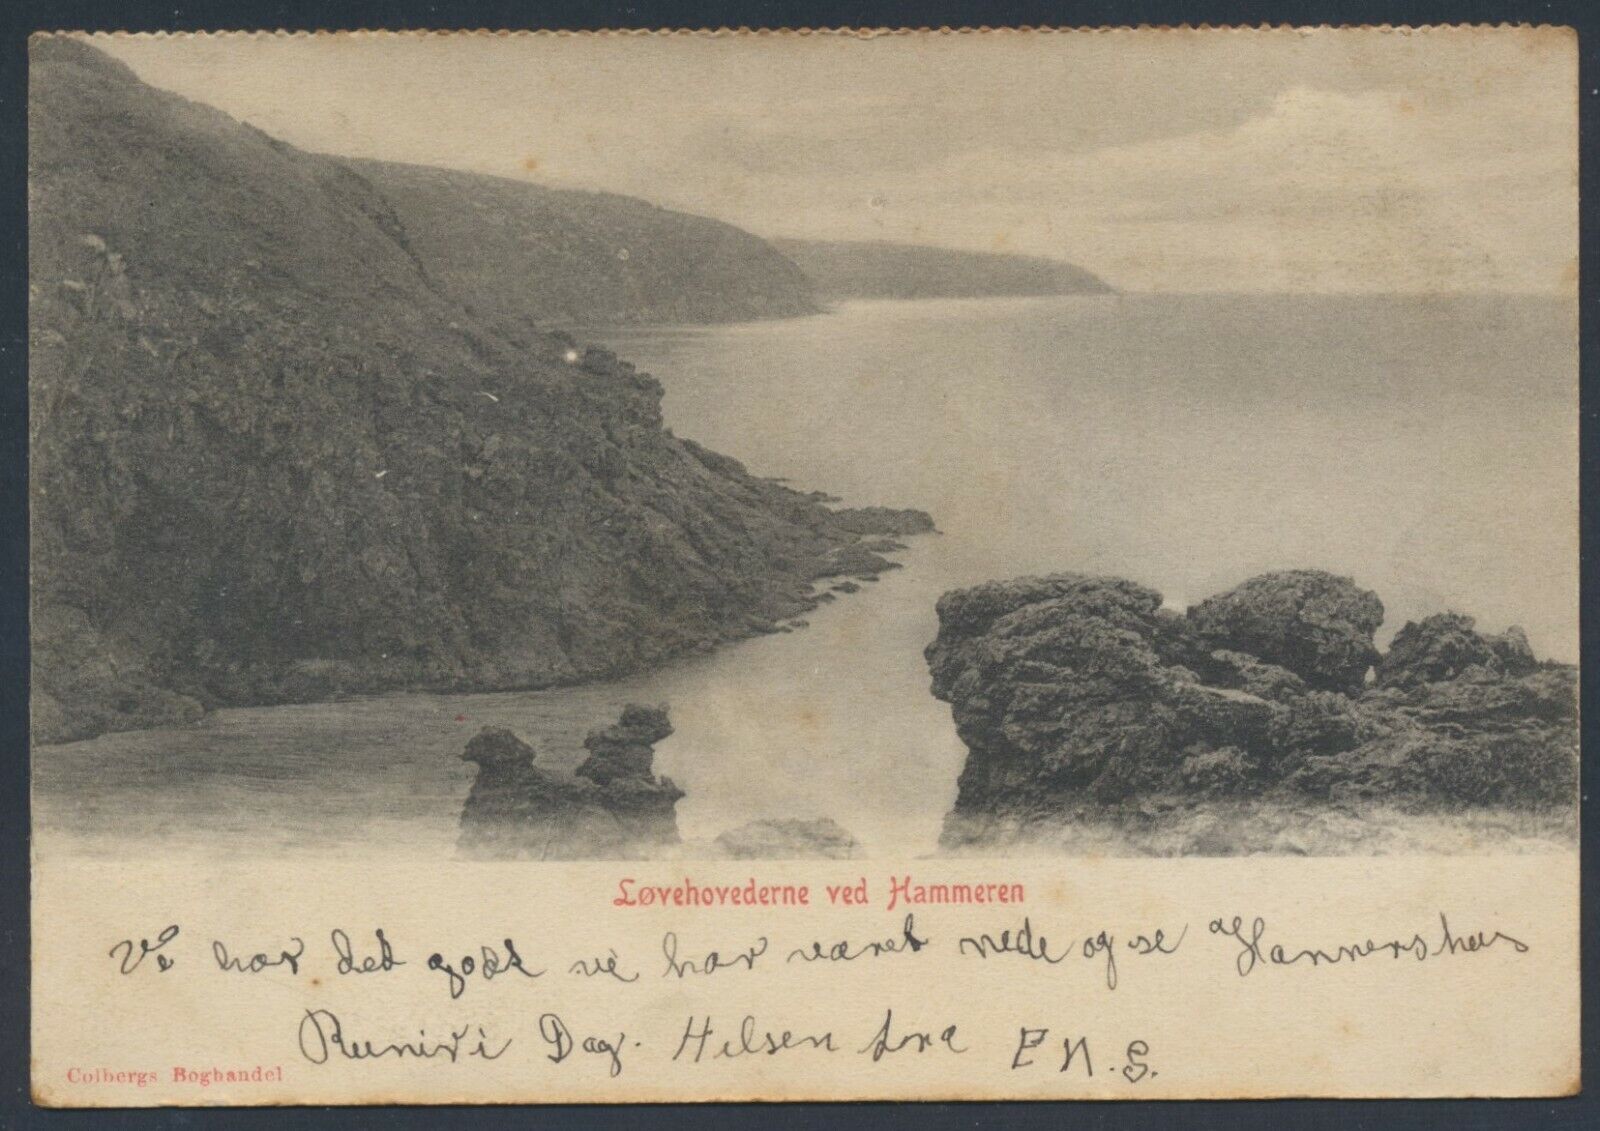 Løvehovederne ved Hammeren
Vi har det godt vi har været nede og se Hammershus
i Dag. Hilsen fora E N. S.
Colbergs Boghandel